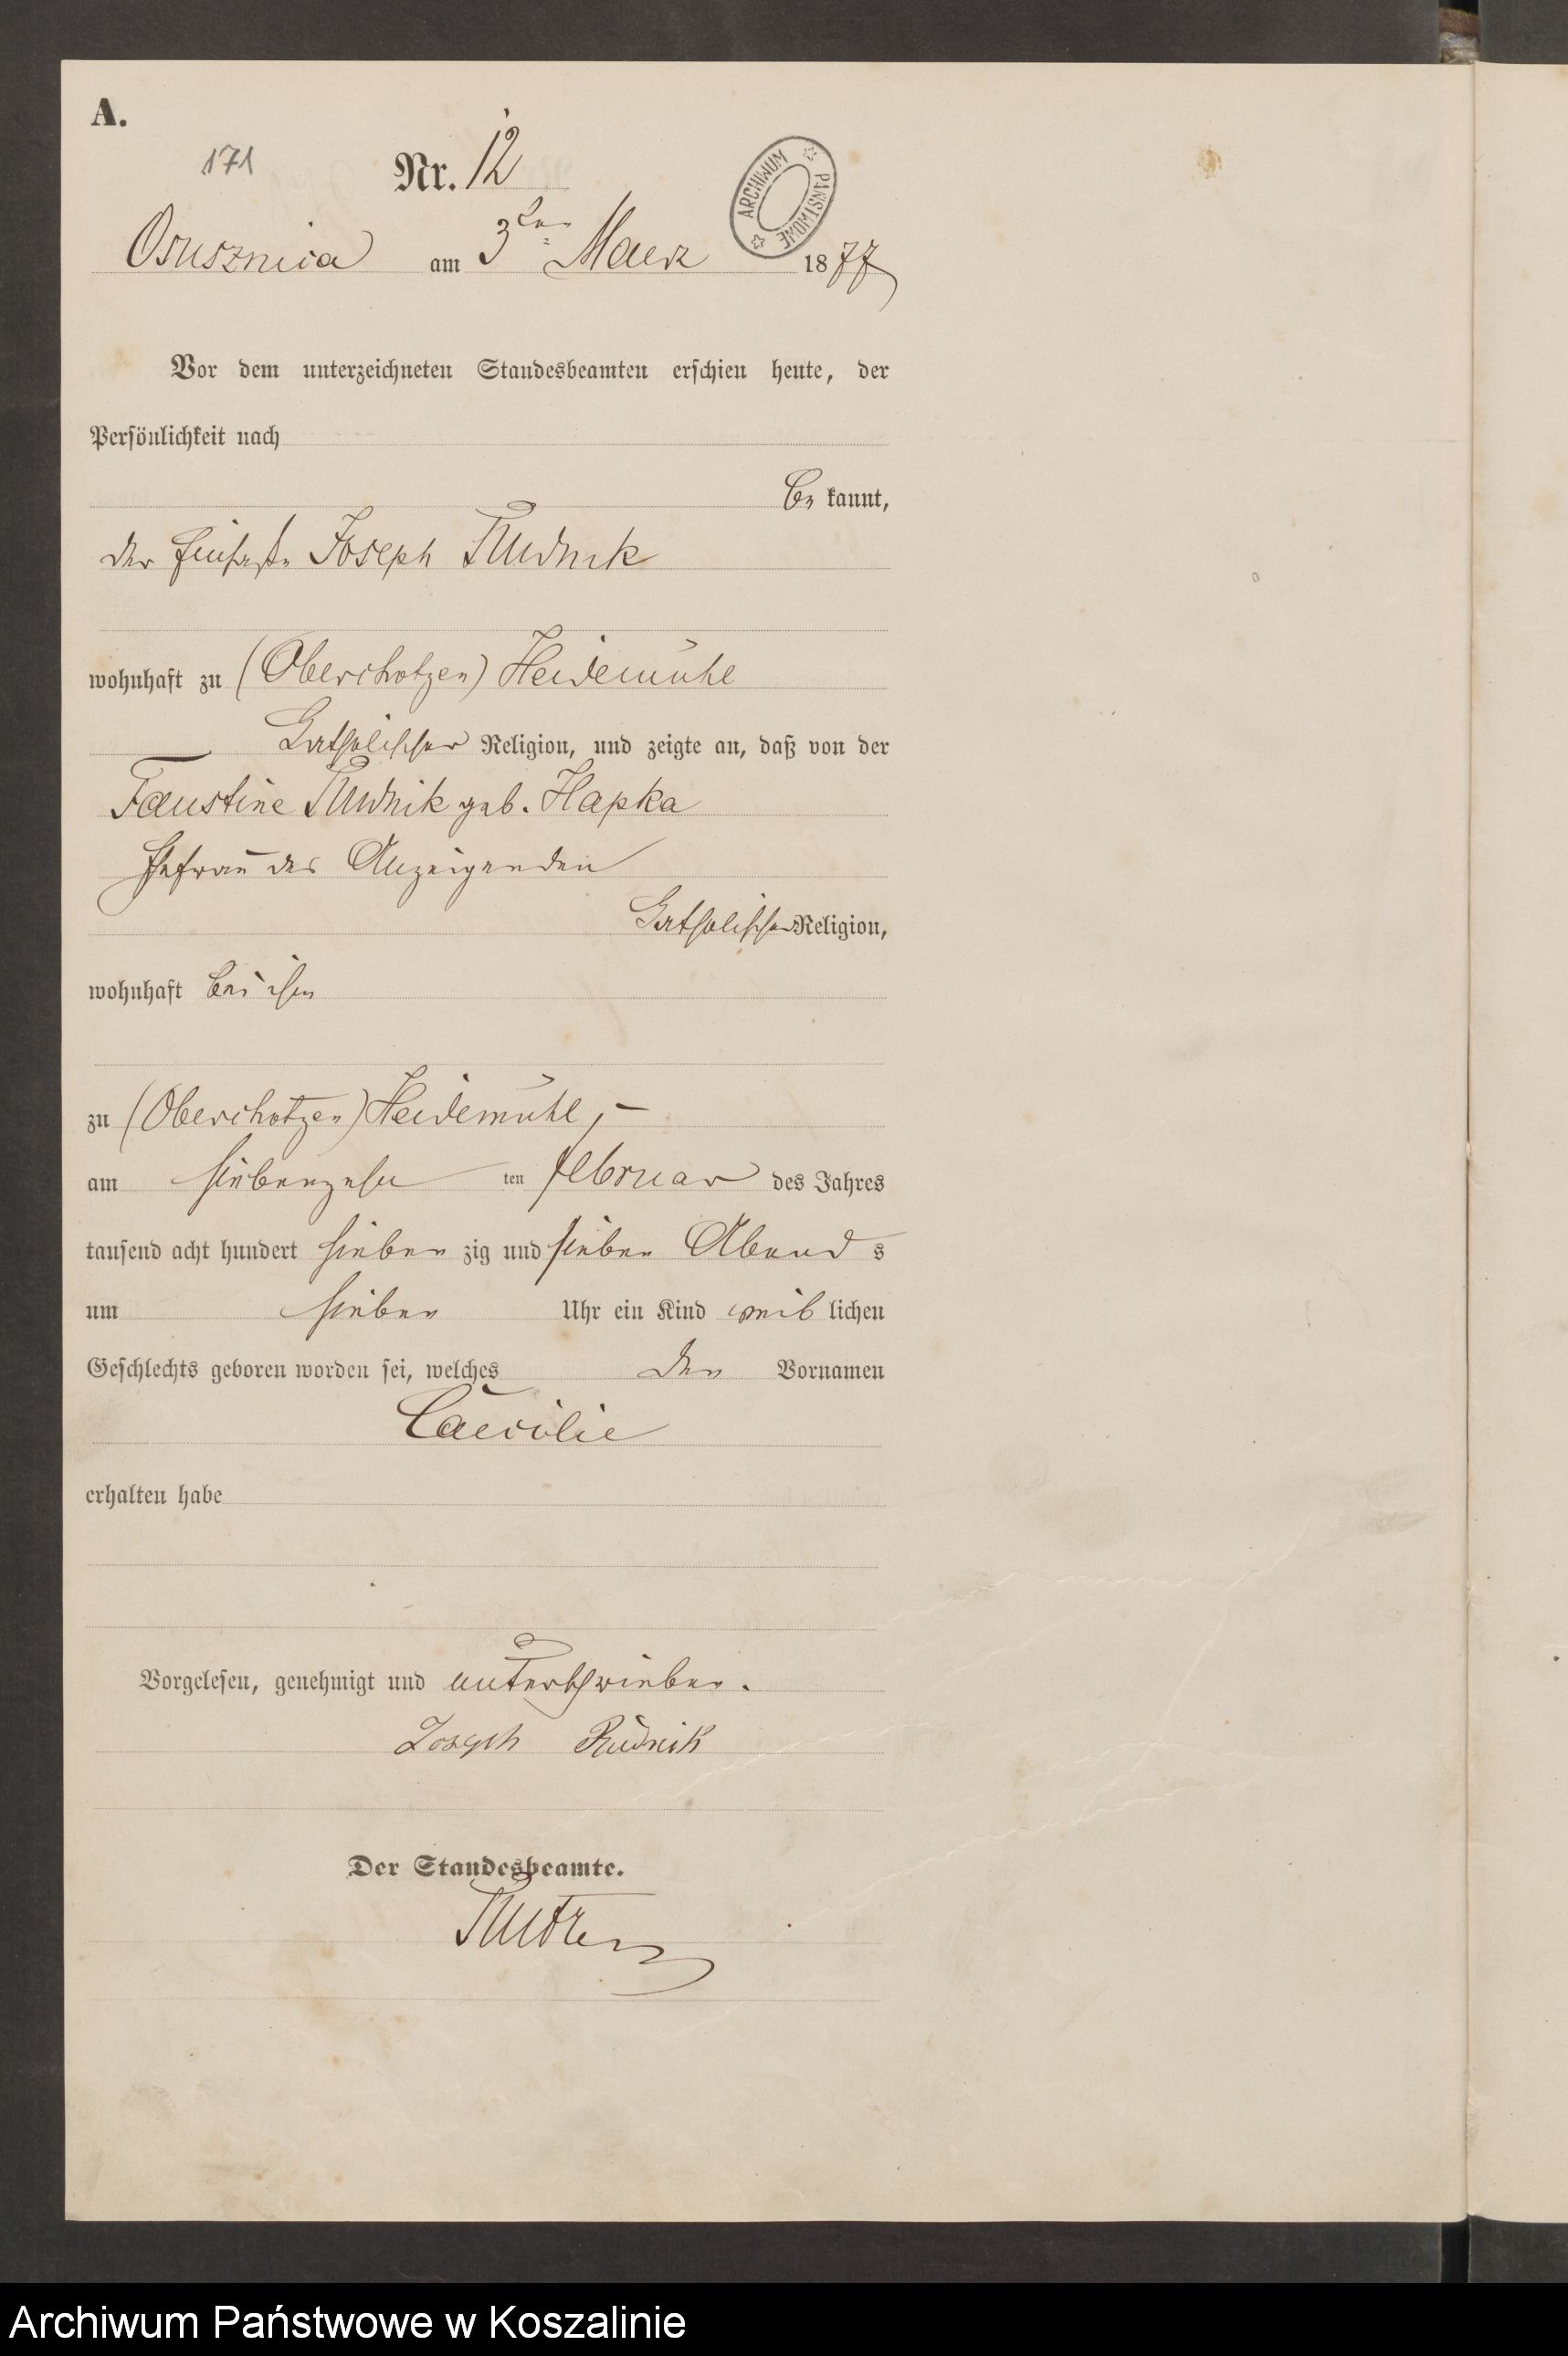 A.
171
Nr. 12
ARCHIWUM PAŃSTWOWE
Osusznica am 3ten Maerz 1877
Vor dem unterzeichneten Standesbeamten erschien heute, der
Persönlichkeit nach
be kannt,
der Einsasse Joseph Rudnik
wohnhaft zu (Oberchotzen) Heidemühl
katholischer Religion, und zeigte an, daß von der
Faustine Rudnik geb. Hapka
Ehefrau des Anzeigenden
katholischer Religion,
wohnhaft bei ihm
zu (Oberchotzen) Heidemühl, -
am siebenzehn ten Februar des Jahres
tausend acht hundert sieben zig und sieben Abend s
um sieben Uhr ein Kind weib lichen
Geschlechts geboren worden sei, welches den Vornamen
Caecilie
erhalten habe
Vorgelesen, genehmigt und unterschrieben.
Joseph Rudnik
Der Standesbeamte.
Archiwum Państwowe w Koszalinie